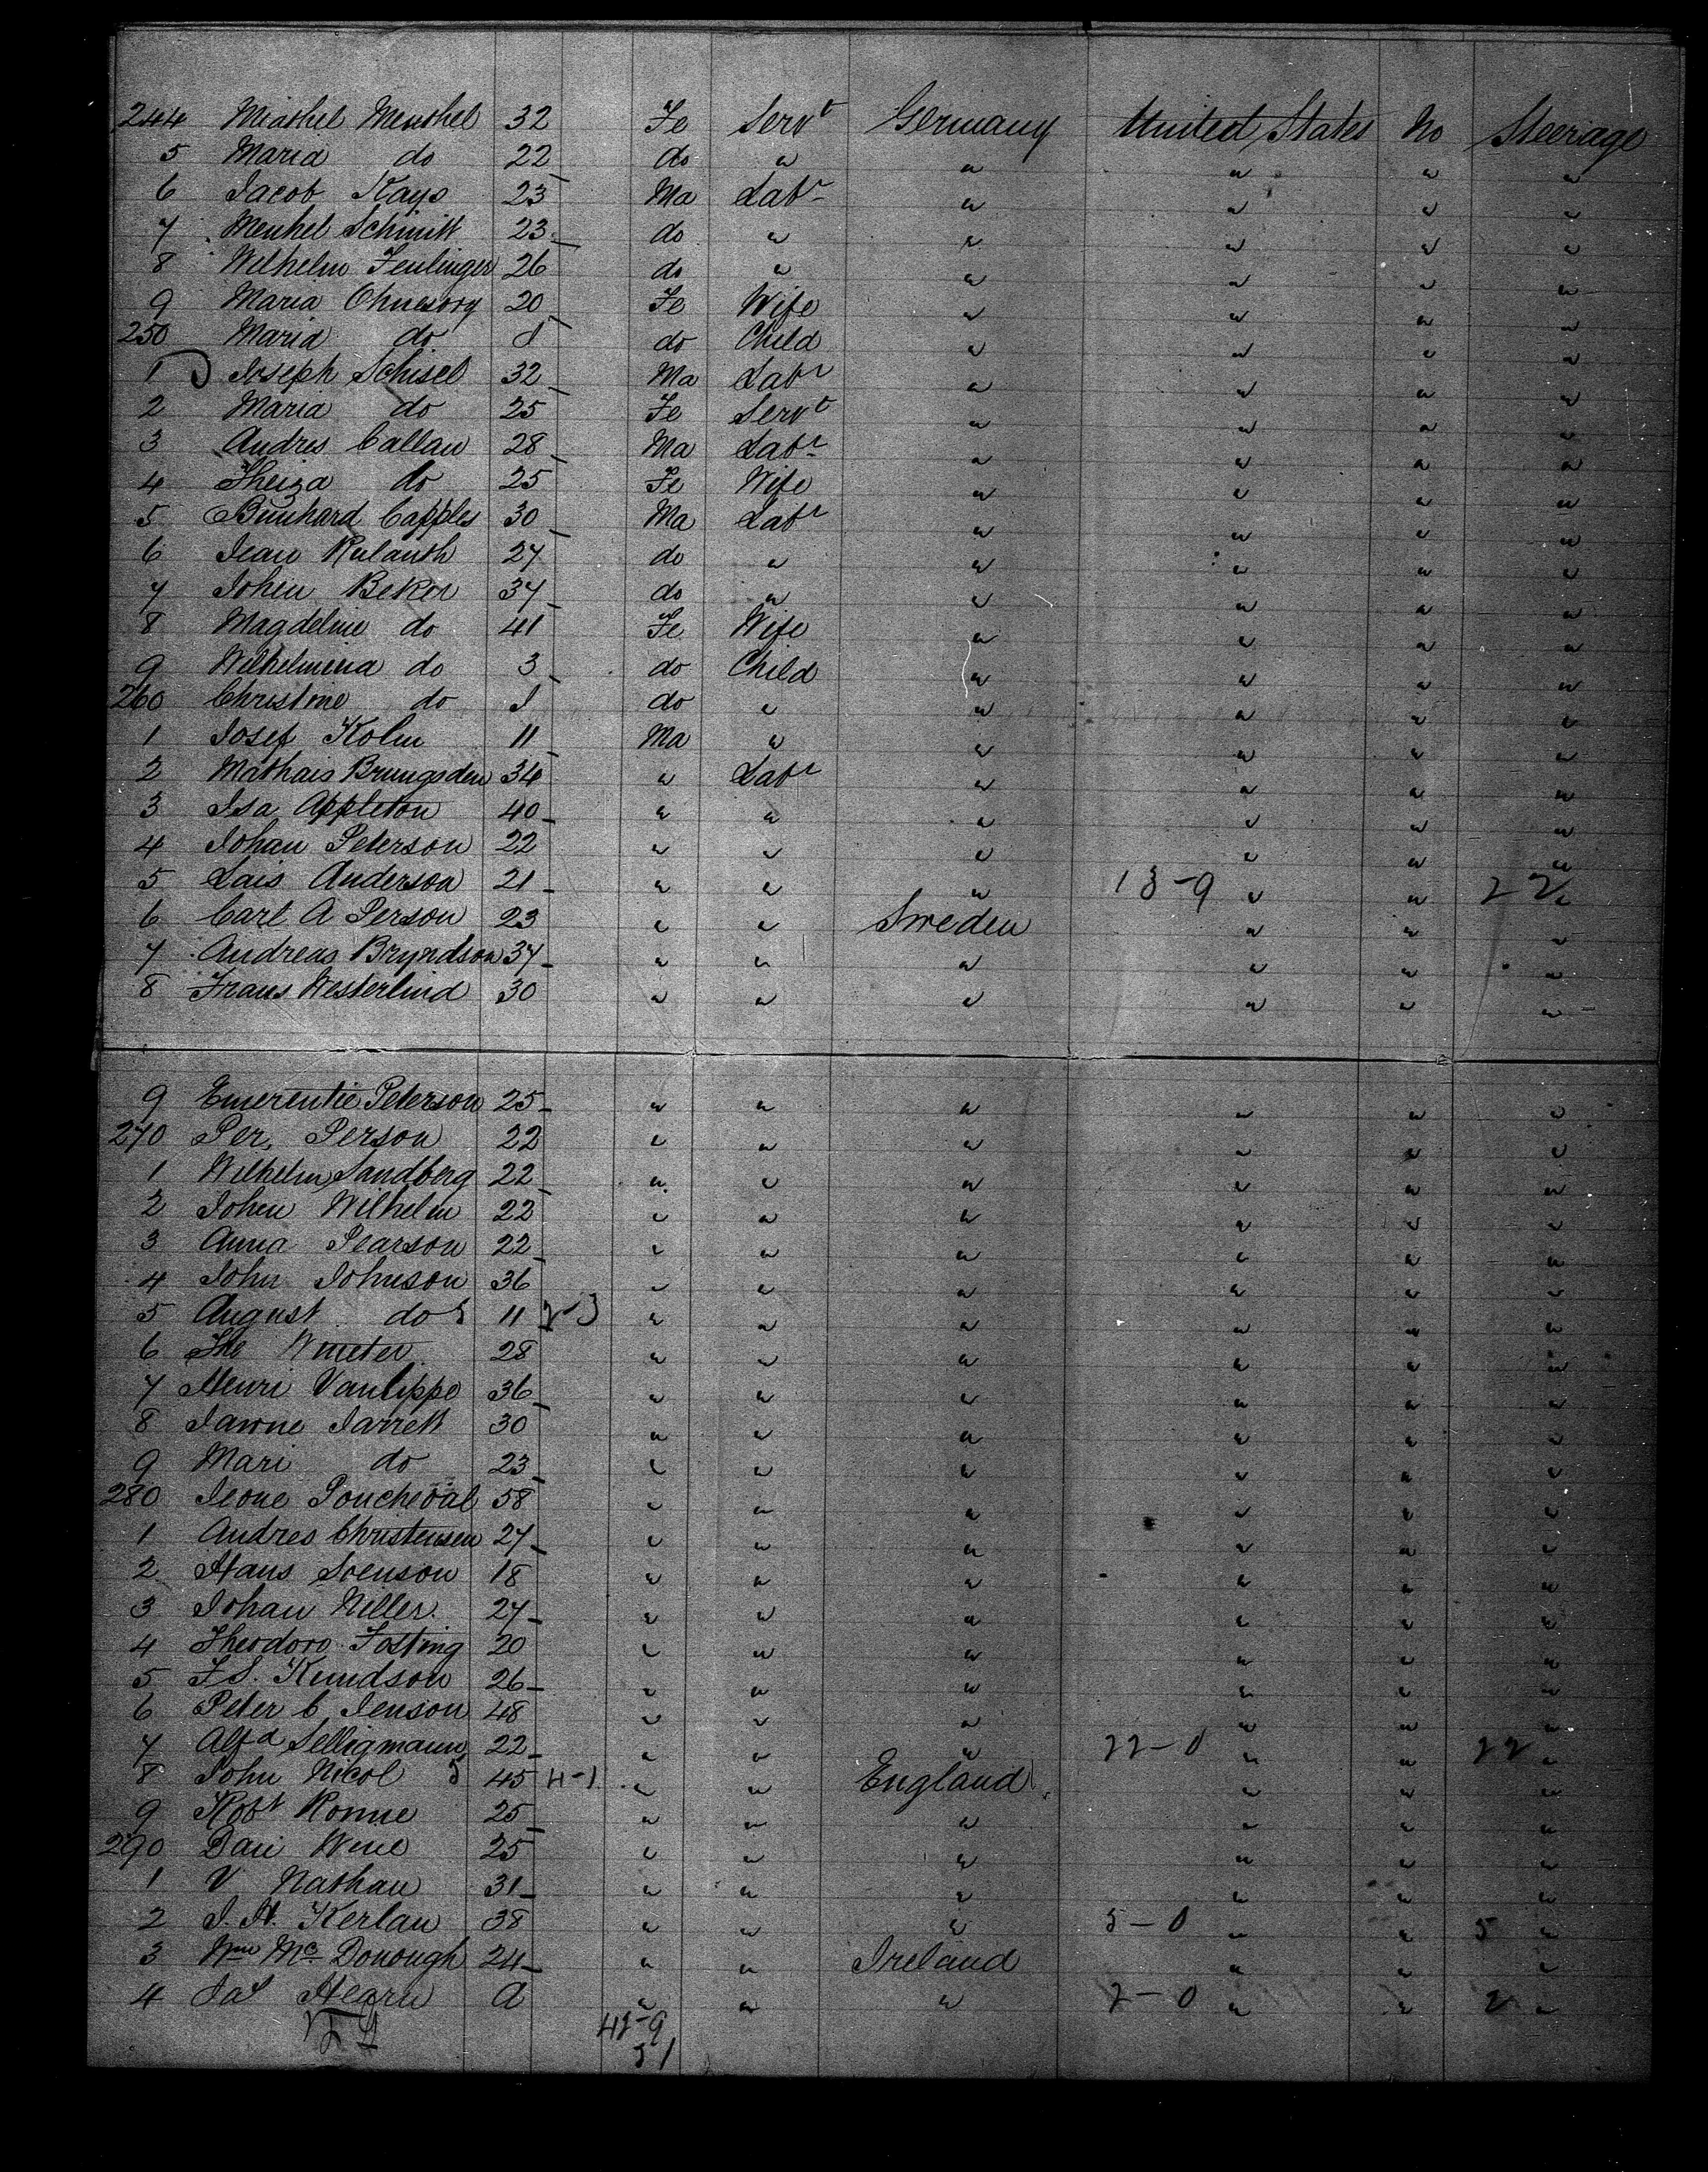 244 Miashel Menthel 32 Fe Servt Germany United States No Steerage
5 Maria do 22 do " " " " "
6 Jacob Kays 23 Ma Labr " " " "
7 Menhel Schmitt 23 do " " " " "
8 Wilhelm Fenlinger 26 do " " " " "
9 Maria Ohnesorg 20 Fe Wife " " " "
250 Maria do do Child " " " "
1 Joseph Schisel 32 Ma Labr " " " "
2 Maria do 25 Fe Servt " " " "
3 Andres Callan 28 Ma Labr " " " "
4 Theiza do 25 Fe Wife " " " "
5 Bunhard Capples 30 Ma Labr " " " "
6 Jean Rulanth 27 do " " " " "
7 Johen Beker 37 do " " " " "
8 Magdeline do 41 Fe Wife " " " "
9 Wilhelmina do 3 do Child " " " "
260 Christine do 1 do " " " " "
1 Josef Kolm 11 Ma " " " " "
2 Mathais Brungsden 34 " Labr " " " "
3 Isa Appleton 40 " " " " " "
4 Johan Peterson 22 " " " " " "
5 Lais Anderson 21 " " " 13-9 " " 22 "
6 Carl A Person 23 " " Sweden " " "
7 Andreas Bryndson 37 " " " " " "
8 Frans Westerlind 30 " " " " " "
9 Emerentie Peterson 25 " " " " " "
270 Per, Person 22 " " " " " "
1 Wilhelm Sandberg 22 " " " " " "
2 Johen Wilhelm 22 " " " " " "
3 Anna Pearson 22 " " " " " "
4 John Johnson 36 " " " " " "
5 August do 11 " " " " " "
6 The Wmeter 28 " " " " " "
7 Henri Vanlippe 36 " " " " " "
8 Jawne Jarrett 30 " " " " " "
9 Mari do 23 " " " " " "
280 Jeone Poncheval 58 " " " " " "
1 Andres Christensen 27 " " " " " "
2 Hans Svenson 18 " " " " " "
3 Johan Niller 27 " " " " " "
4 Theodoro Fosting 20 " " " " " "
5 F S. Knudson 26 " " " " " "
6 Peter C Jenson 48 " " " " " "
7 Alfd Selligmann 22 " " " 22-0 " " 22 "
8 John Nicol 45 4-1 " " England " " "
9 Robt Ronne 25 " " " " " "
290 Dan Wene 25 " " " " " "
1 V Nathan 31 " " " " " "
2 J. H. Kerlan 38 " " " 5-0 " " 5 "
3 Wm Mc Donough 24 " " Ireland " " "
4 Jas Hearn a " " " 2-0 " " 2 "
42-9
51